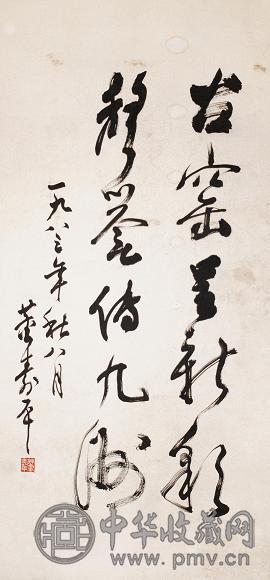 古窑呈新彩
聲誉传九洲
一九八三年秋八月
董寿平
中华收藏网
www.pmv.cn